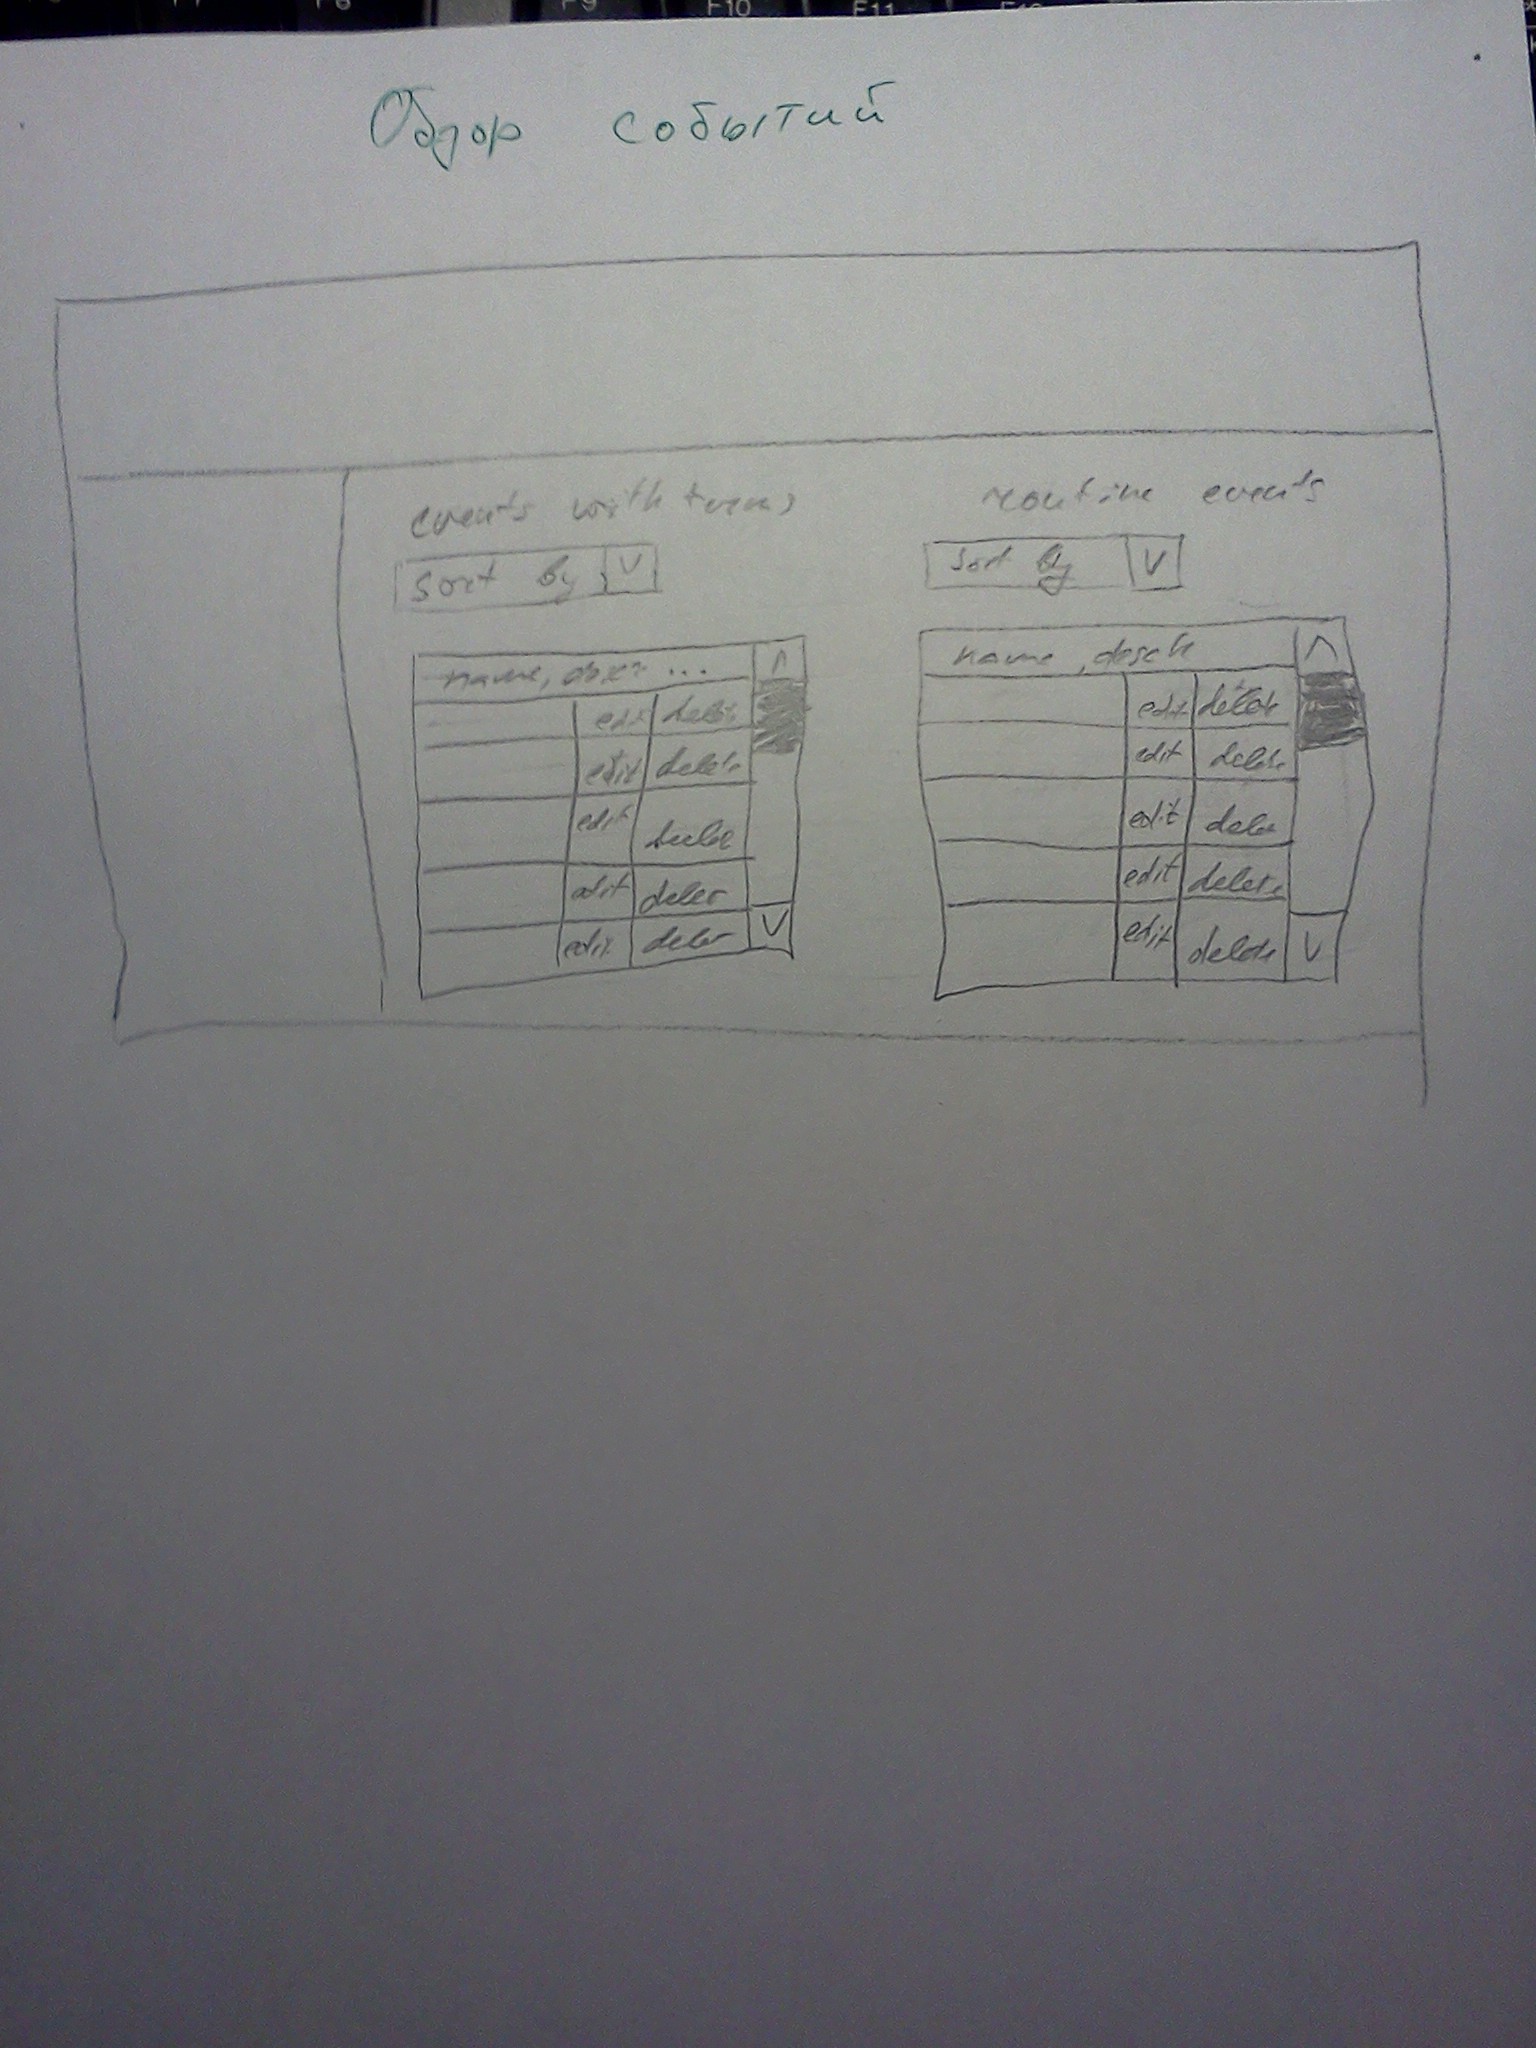 F6
F9
F10
F11
Обзор событий
events with terms
Sort by V
name, ...
edit delete
edit delete
edit
edit
edit
V
routine events
Sort by V
name,
edit delete
edit delete
edit delet
edit delete
edit delete
V